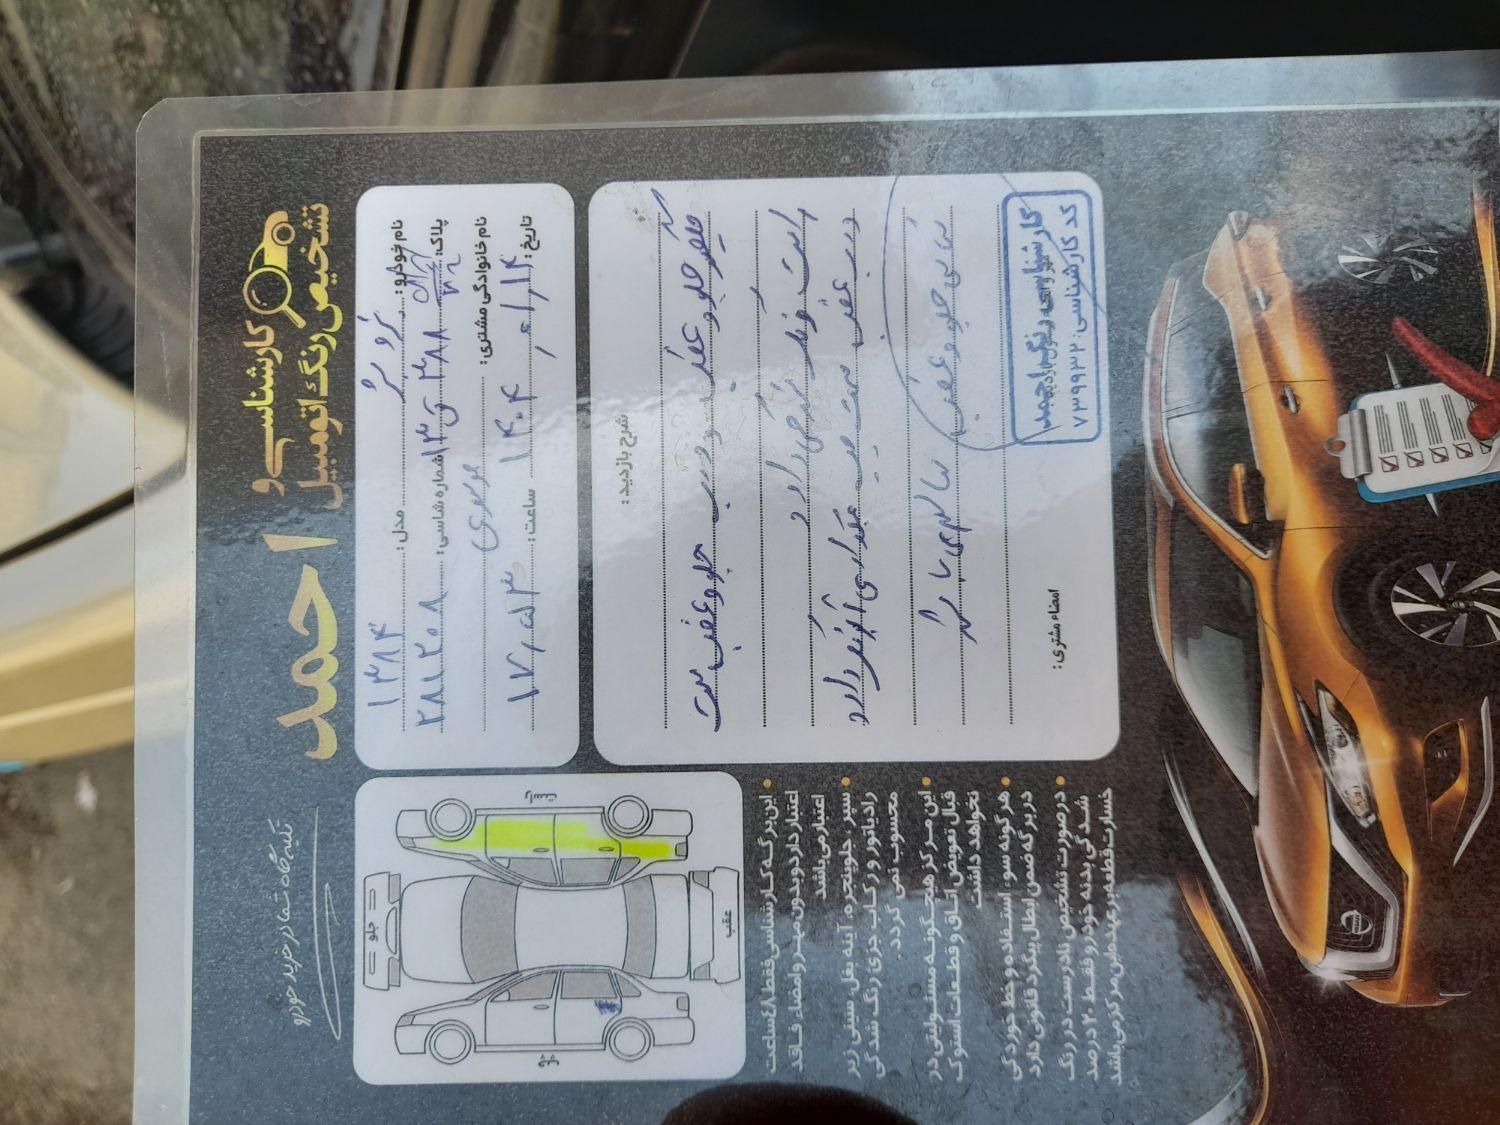 کارشناسی و
تشخیص رنگ اتومبیل
احمد
تکیه گاه شما در خرید خودرو
نام خودرو: مدل: ۱۳۸۴
پلاک: شماره شاسی: ۲۸۱۲۰۸
نام خانوادگی مشتری: موسوی
تاریخ: ۱۴۰۴ ساعت:
شرح بازدید:
گلگیر جلو و عقب و درب جلو و عقب سمت
راست رنگ دارد
درب عقب سمت چپ مقداری دارد
شاسی جلو و عقب سالم می باشد
امضاء مشتری:
کارشناسی رنگ احمد
کد کارشناسی: ۷۳۹۹۳۲
راست
جلو
عقب
چپ
این برگه کارشناسی فقط ۴۸ ساعت
اعتبار دارد و بدون مهر و امضاء فاقد
اعتبار می باشد
سپر، جلوپنجره، آینه بغل، سینی زیر
رادیاتور و رکاب جزئ رنگ شدگی
محسوب نمی گردد
این مرکز هیچگونه مسئولیتی در
قبال تعویض اتاق و قطعات استوک
نخواهد داشت
هر گونه سوء استفاده و خط خوردگی
در برگه ضمن ابطال پیگرد قانونی دارد
در صورت تشخیص نادرست در رنگ
شدگی بدنه خودرو فقط ۲۰ درصد
خسارت قطعه بر عهده این مرکز می باشد